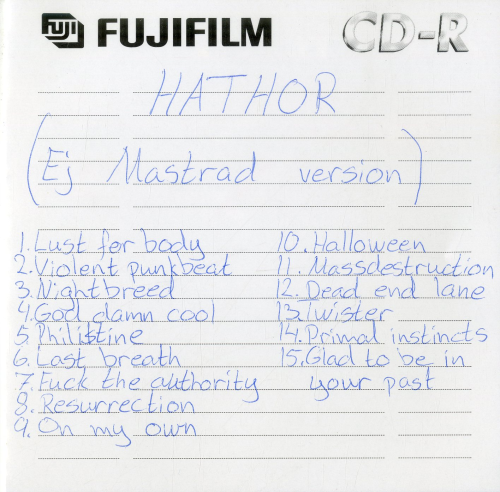 FUJI FUJIFILM CD-R
HATHOR
(Ej Mastrad version)
1. Lust for body
2. Violent punkbeat
3. Nightbreed
4. God damn cool
5. Philistine
6. Last breath
7. Fuck the authority
8. Resurrection
9. On my own
10. Halloween
11. Massdestruction
12. Dead end lane
13. Twister
14. Primal instincts
15. Glad to be in
your past